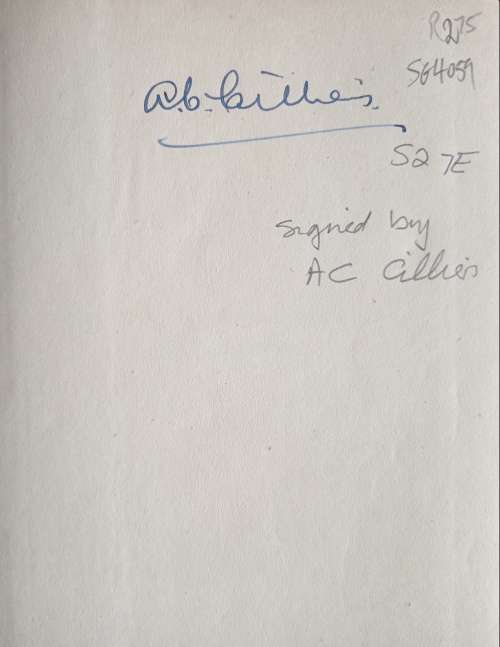 R275
SG4059
A.C. Cillié's.
S2 7E
Signed by
AC Cilliers